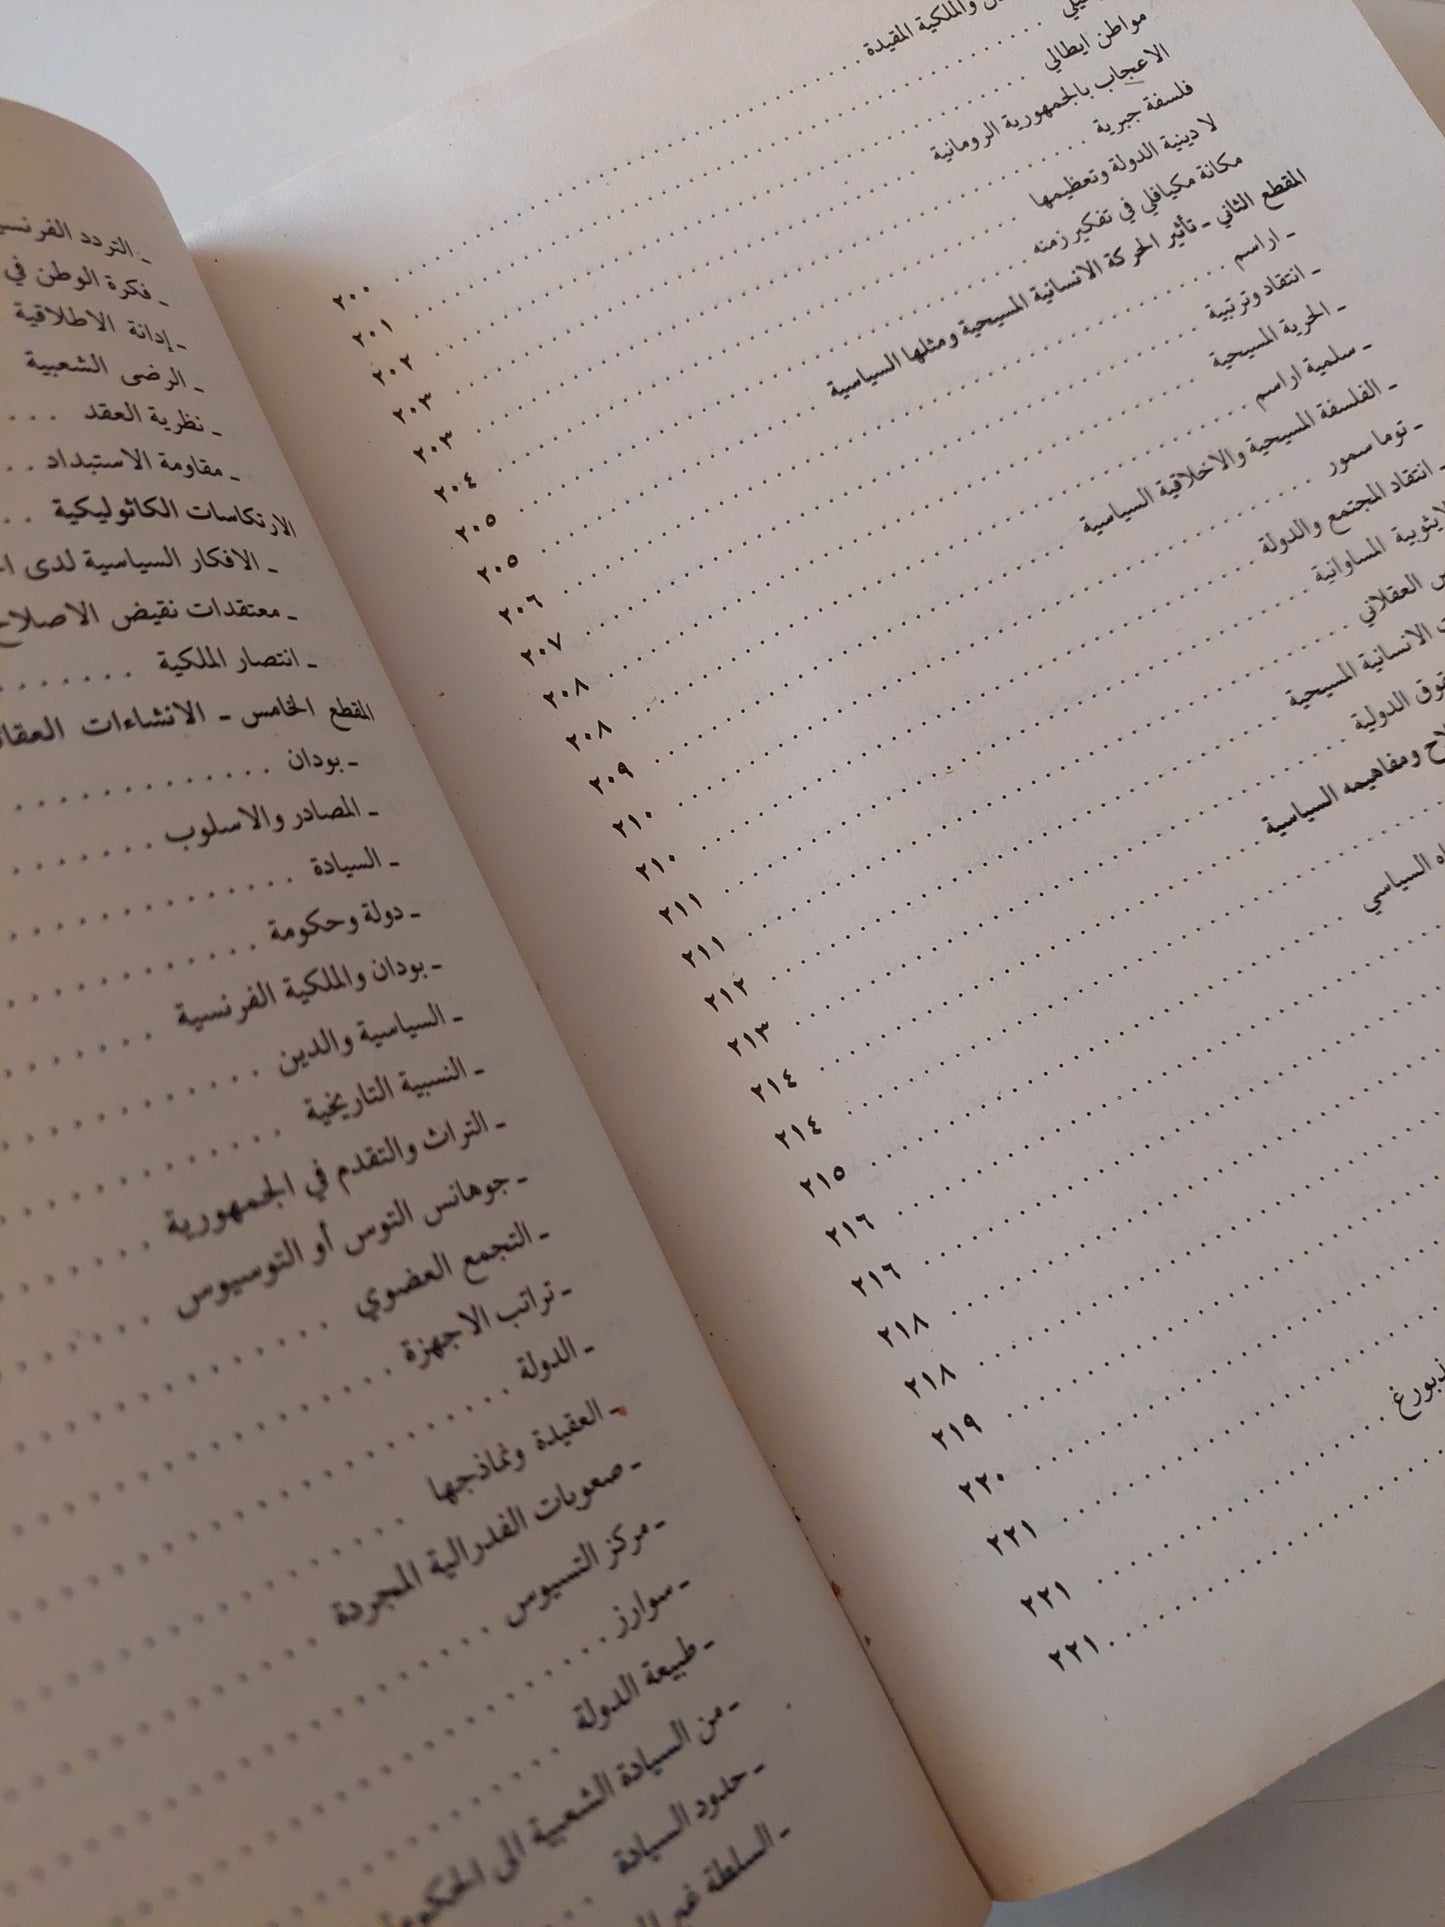 والملكية المقيدة . . . ٢٠٠
. . . ٢٠١
مواطن ايطالي . . . ٢٠٢
الاعجاب بالجمهورية الرومانية . . . ٢٠٣
فلسفة جبرية . . . ٢٠٣
لا دينية الدولة وتعظيمها . . . ٢٠٤
مكانة مكيافلي في تفكير زمنه . . . ٢٠٥
المقطع الثاني ـ تأثير الحركة الانسانية المسيحية ومثلها السياسية . . . ٢٠٥
ـ اراسم . . . ٢٠٦
ـ انتقاد وتربية . . . ٢٠٧
ـ الحرية المسيحية . . . ٢٠٨
ـ سلمية اراسم . . . ٢٠٨
ـ الفلسفة المسيحية والاخلاقية السياسية . . . ٢٠٩
ـ توما سمور . . . ٢١٠
ـ انتقاد المجتمع والدولة . . . ٢١٠
المساواتية . . . ٢١١
العقلاني . . . ٢١١
الانسانية المسيحية . . . ٢١٢
الدولية . . . ٢١٣
ومفاهيمه السياسية . . . ٢١٤
. . . ٢١٤
السياسي . . . ٢١٥
. . . ٢١٦
. . . ٢١٦
. . . ٢١٨
. . . ٢١٨
. . . ٢١٩
. . . ٢٢٠
. . . ٢٢١
. . . ٢٢١
. . . ٢٢١
ـ التردد
ـ فكرة الوطن في
ـ إدانة الاطلاقية
ـ الرضى الشعبية
ـ نظرية العقد . . .
ـ مقاومة الاستبداد . . .
الارتكاسات الكاثوليكية . . .
ـ الافكار السياسية لدى
ـ معتقدات نقيض الاصلاح
ـ انتصار الملكية . . .
المقطع الخامس ـ الانشاءات
ـ بودان . . .
ـ المصادر والاسلوب . . .
ـ السيادة . . .
ـ دولة وحكومة . . .
ـ بودان والملكية الفرنسية . . .
ـ السياسية والدين . . .
ـ النسبية التاريخية . . .
ـ التراث والتقدم في الجمهورية . . .
ـ جوهانس التوس أو التوسيوس . . .
ـ التجمع العضوي . . .
ـ تراتب الاجهزة . . .
ـ الدولة . . .
ـ العقيدة ونماذجها . . .
ـ صعوبات الفدرالية المجردة . . .
ـ مركز التسيوس . . .
ـ سوارز . . .
ـ طبيعة الدولة . . .
ـ من السيادة الشعبية الى
ـ حدود السيادة . . .
ـ السلطة غير